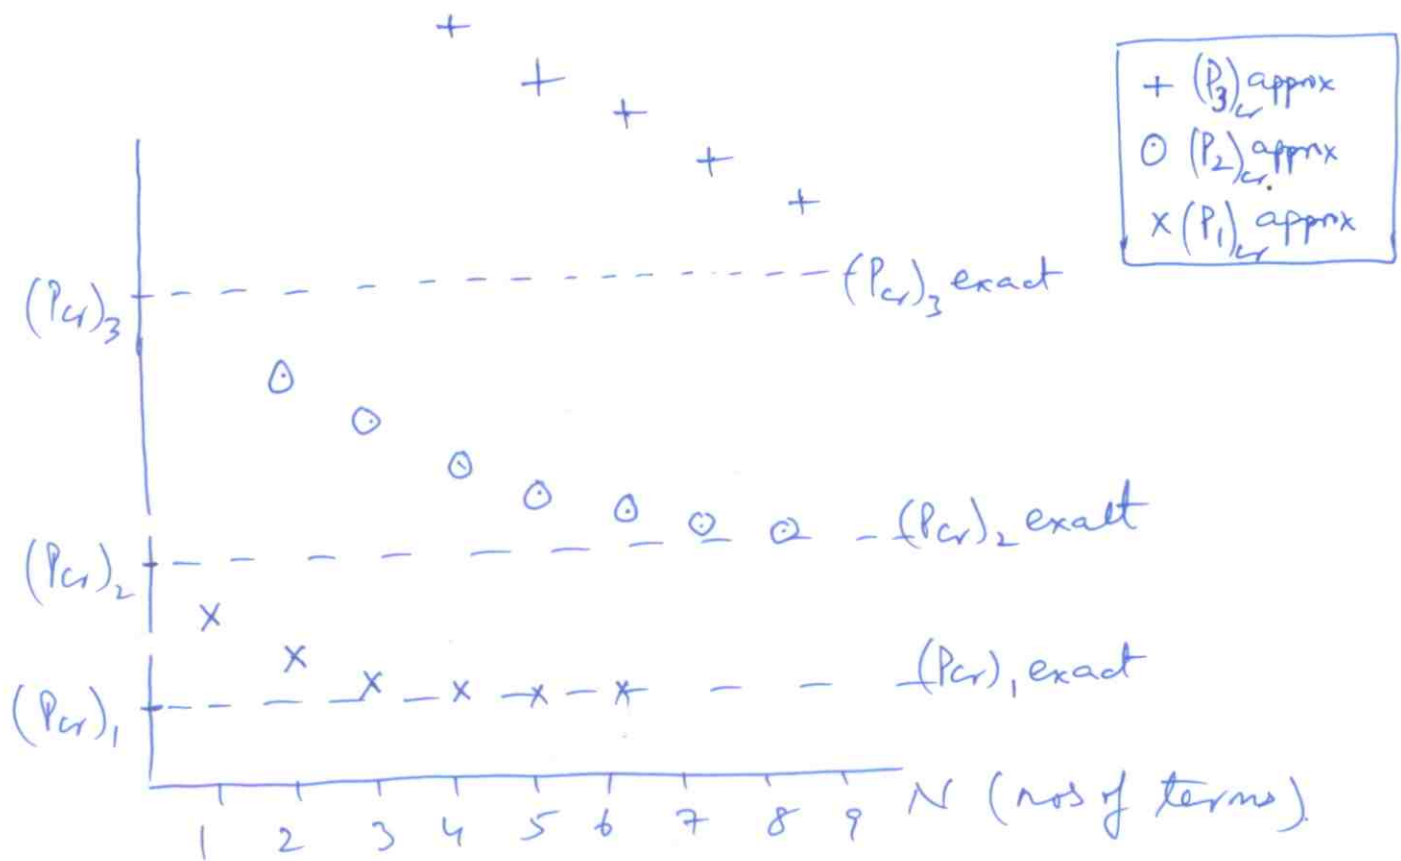 + (P₃)cr approx
⊙ (P₂)cr approx
x (P₁)cr approx
(Pcr)₃
(Pcr)₃ exact
(Pcr)₂
(Pcr)₂ exact
(Pcr)₁
(Pcr)₁ exact
1 2 3 4 5 6 7 8 9
N (nos of terms).